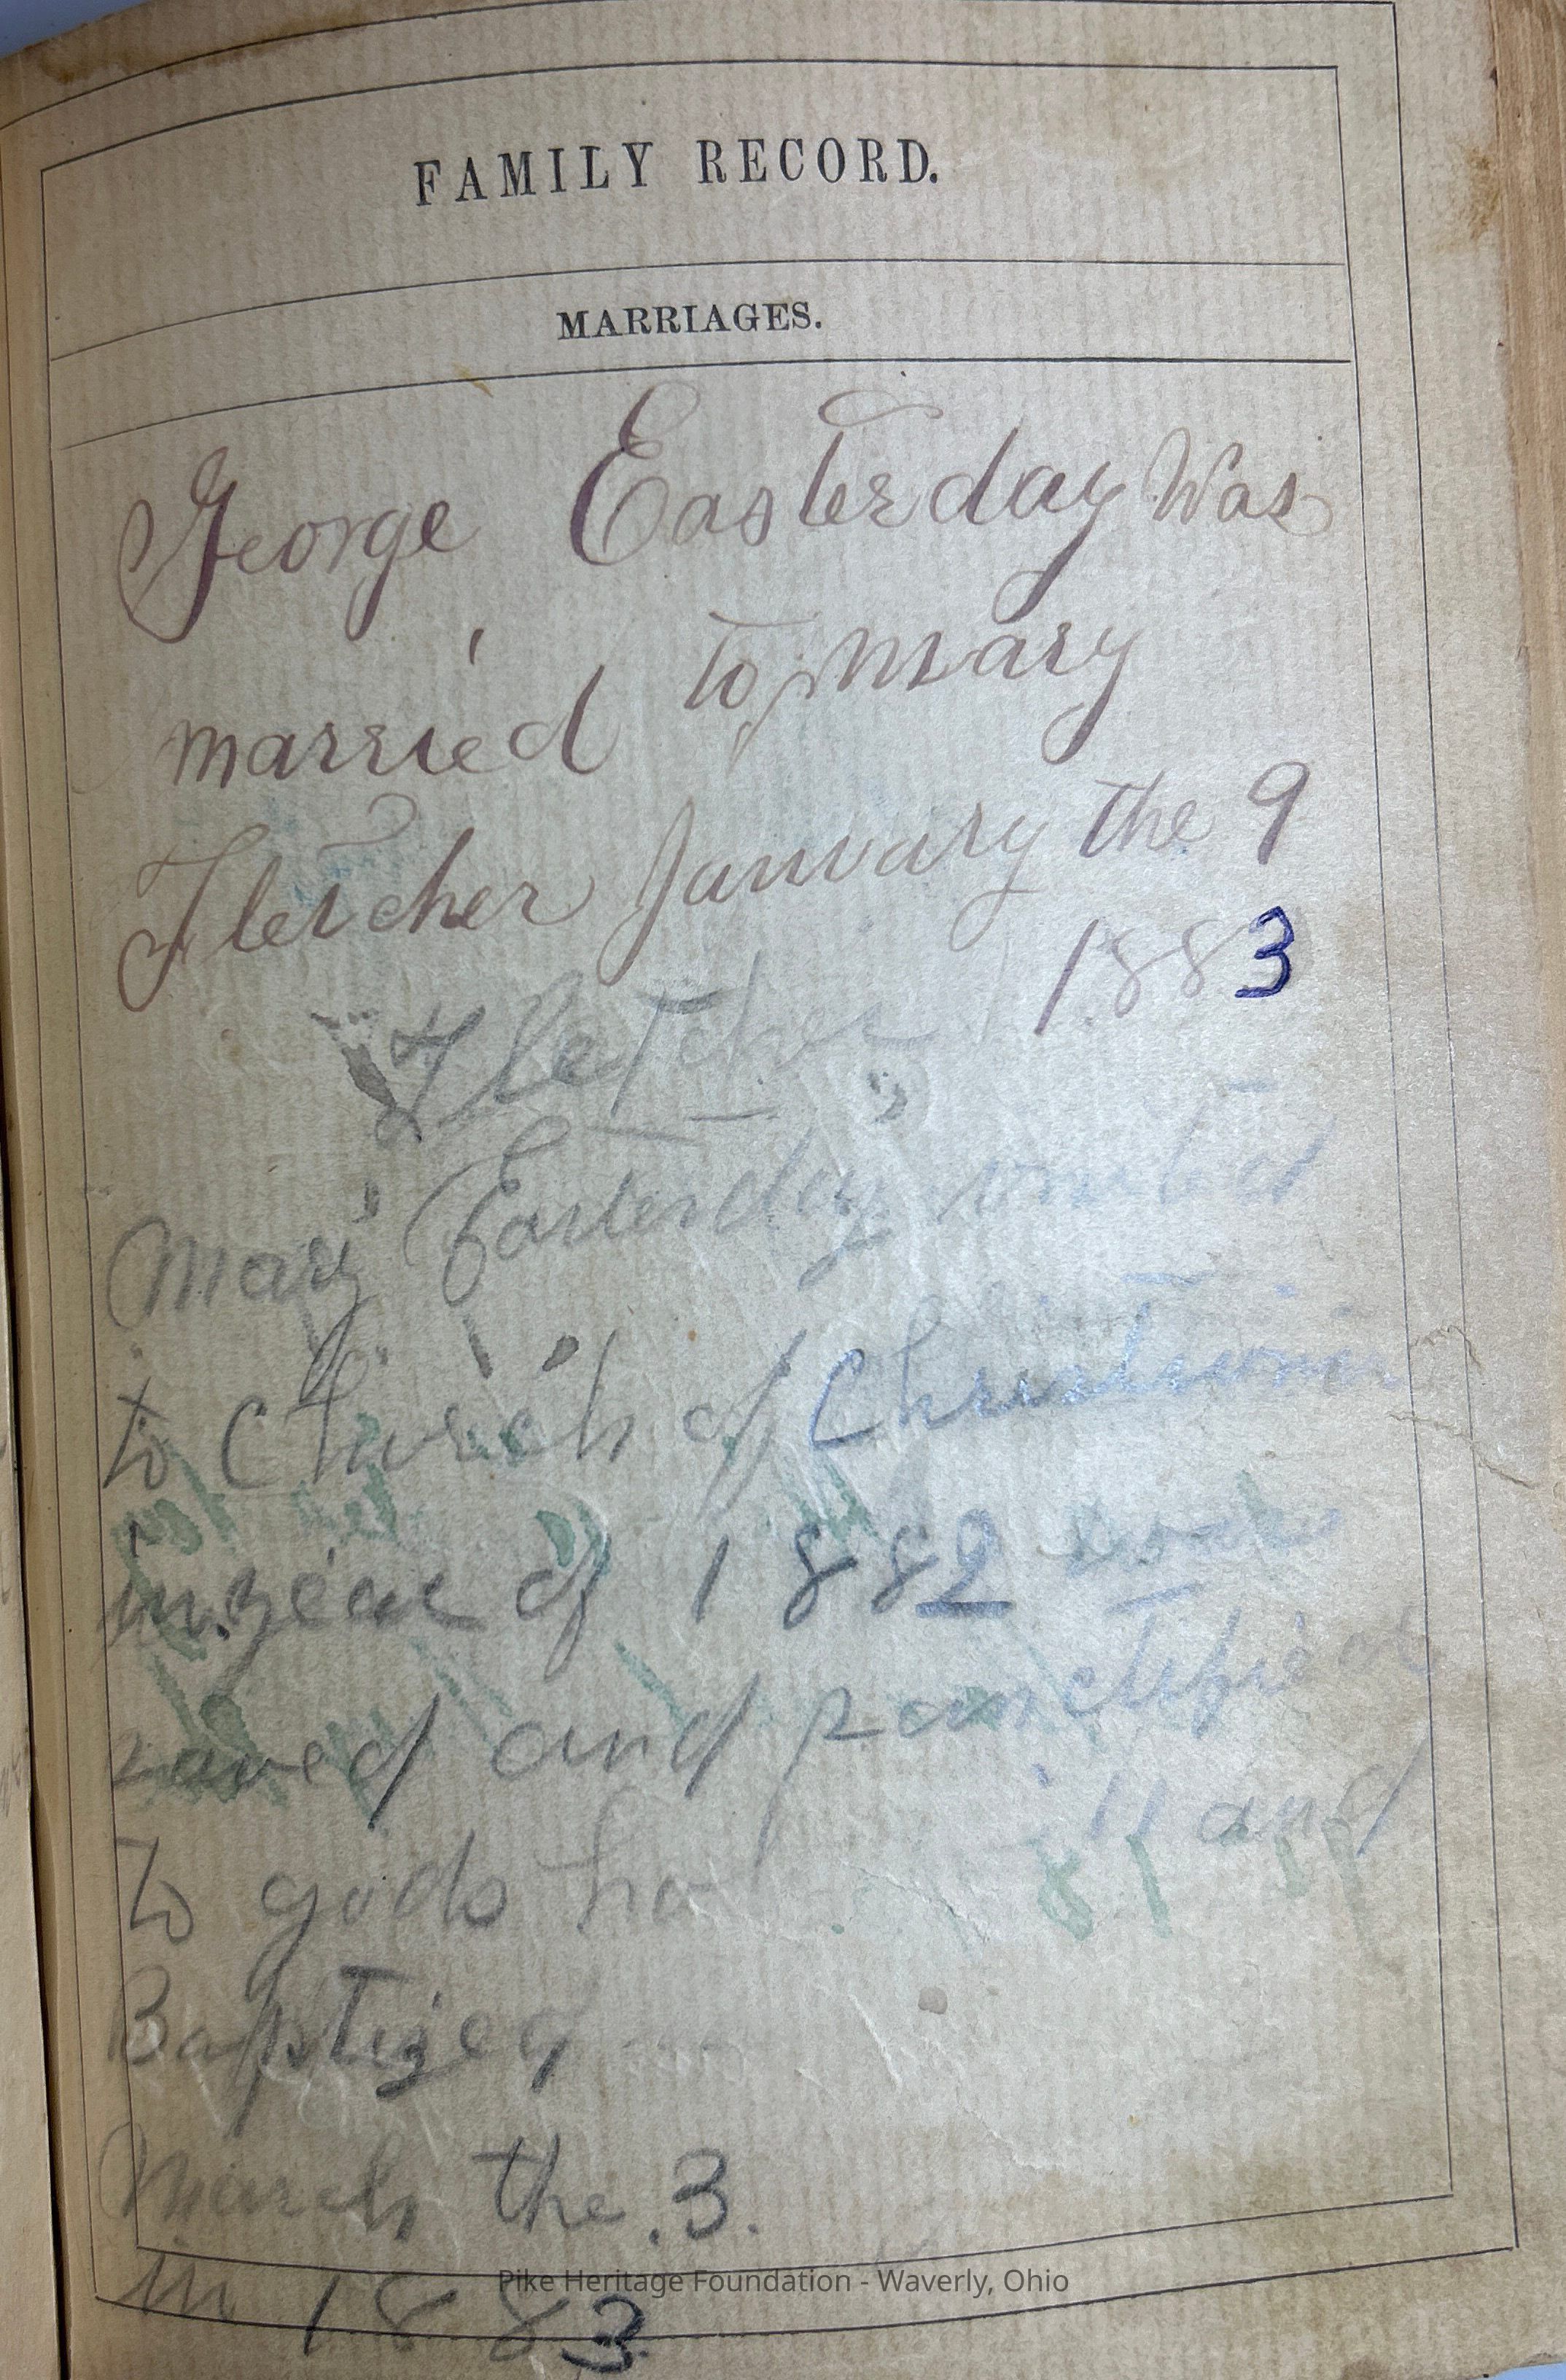 FAMILY RECORD.
MARRIAGES.
George Easterday Was
married to Mary
Fletcher January the 9
1883
Fletcher
Mary Easterday united
to Church of Christian
in year of 1882 was
saved and sanctified
to gods and
Baptized
March the 3.
in 1883
Pike Heritage Foundation - Waverly, Ohio